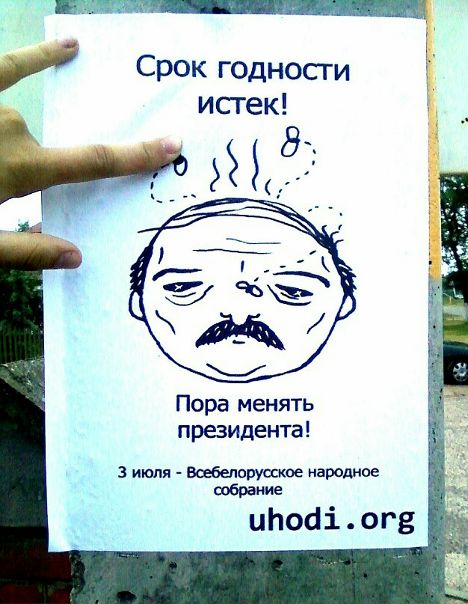 Срок годности
истек!
Пора менять
президента!
3 июля - Всебелорусское народное
собрание
uhodi.org